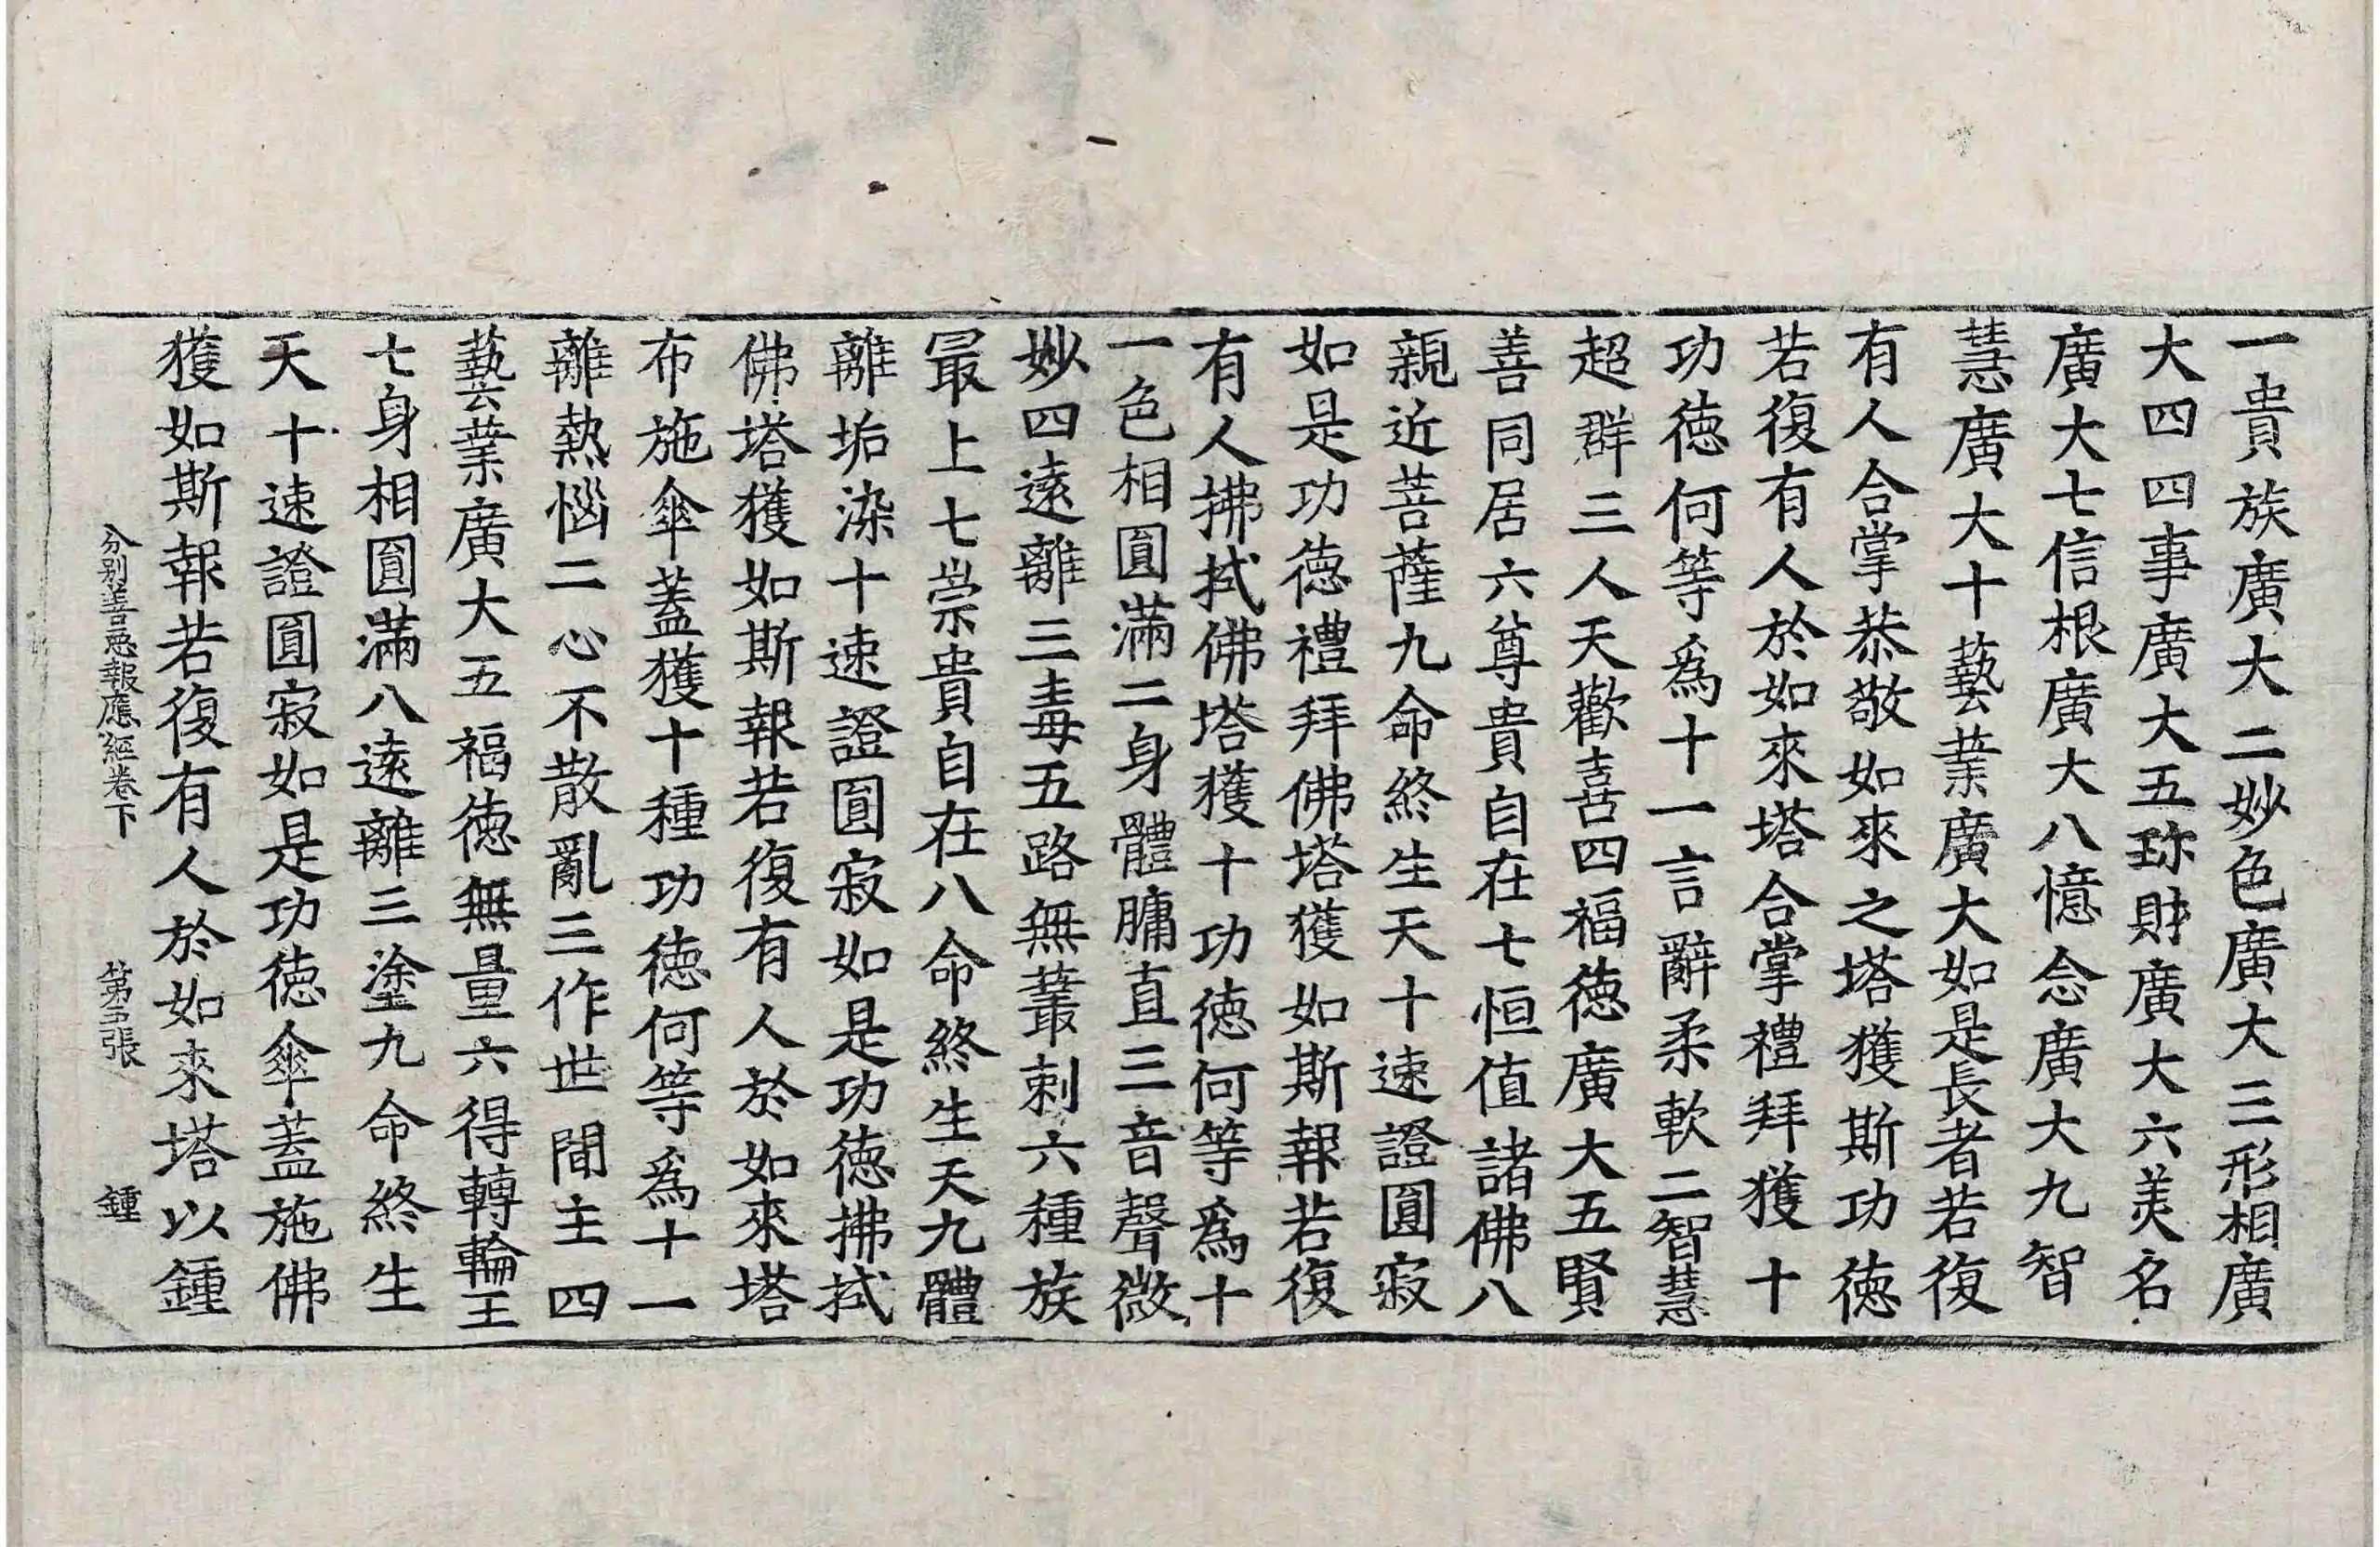 一貴族廣大二妙色廣大三形相廣
大四四事廣大五珎財廣大六美名
廣大七信根廣大八憶念廣大九智
慧廣大十藝業廣大如是長者若復
有人合掌恭敬如來之塔獲斯功德
若復有人於如來塔合掌禮拜獲十
功德何等爲十一言辭柔軟二智慧
超群三人天歡喜四福德廣大五賢
善同居六尊貴自在七恒值諸佛八
親近菩薩九命終生天十速證圓寂
如是功德禮拜佛塔獲如斯報若復
有人拂拭佛塔獲十功德何等爲十
一色相圓滿二身體𦟛直三音聲微
妙四遠離三毒五路無藂刺六種族
最上七崇貴自在八命終生天九體
離垢染十速證圓寂如是功德拂拭
佛塔獲如斯報若復有人於如來塔
布施傘蓋獲十種功德何等爲十一
離熱惱二心不散亂三作世間主四
藝業廣大五福德無量六得轉輪王
七身相圓滿八遠離三塗九命終生
天十速證圓寂如是功德傘蓋施佛
獲如斯報若復有人於如來塔以鍾
分別善惡報應經卷下 第張 鍾